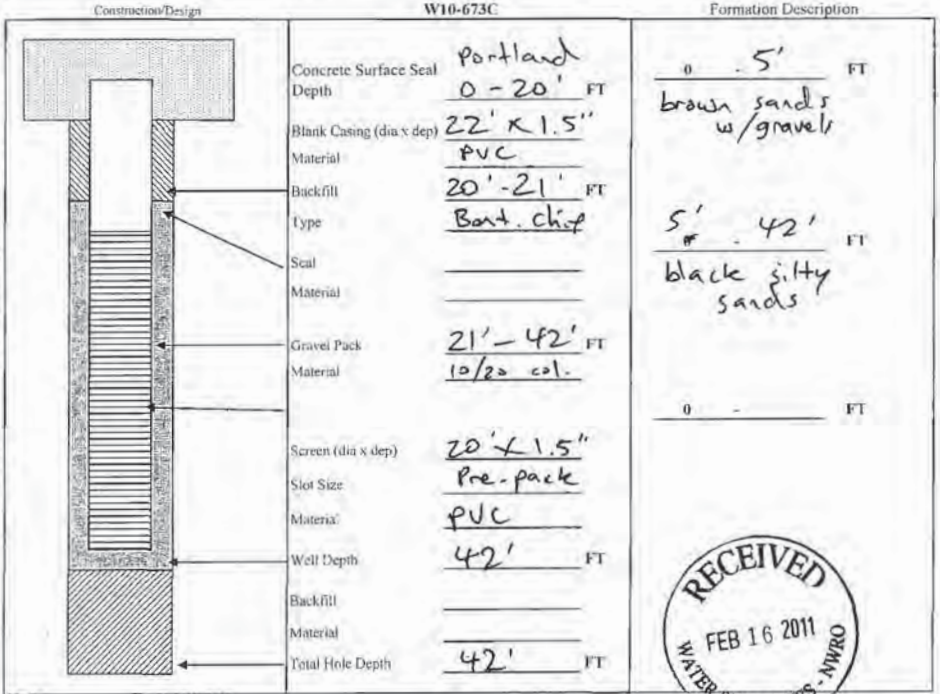 Construction/Design
W10-673C
Formation Description
Concrete Surface Seal Portland
Depth 0 - 20' FT
Blank Casing (dia x dep) 22' x 1.5"
Material PVC
Backfill 20'-21' FT
Type Bent. chip
Seal
Material
Gravel Pack 21'-42' FT
Material 10/20 col.
Screen (dia x dep) 20' x 1.5"
Slot Size Pre-pack
Material PVC
Well Depth 42' FT
Backfill
Material
Total Hole Depth 42' FT
0 - 5' FT
brown sands
w/gravels
5' - 42' FT
black silty
sands
0 - FT
RECEIVED
FEB 16 2011
WATER - NWRO